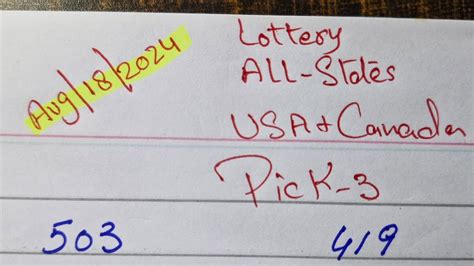 Lottery
Aug/18/2024 All-States
USA + Canada
Pick-3
503 419